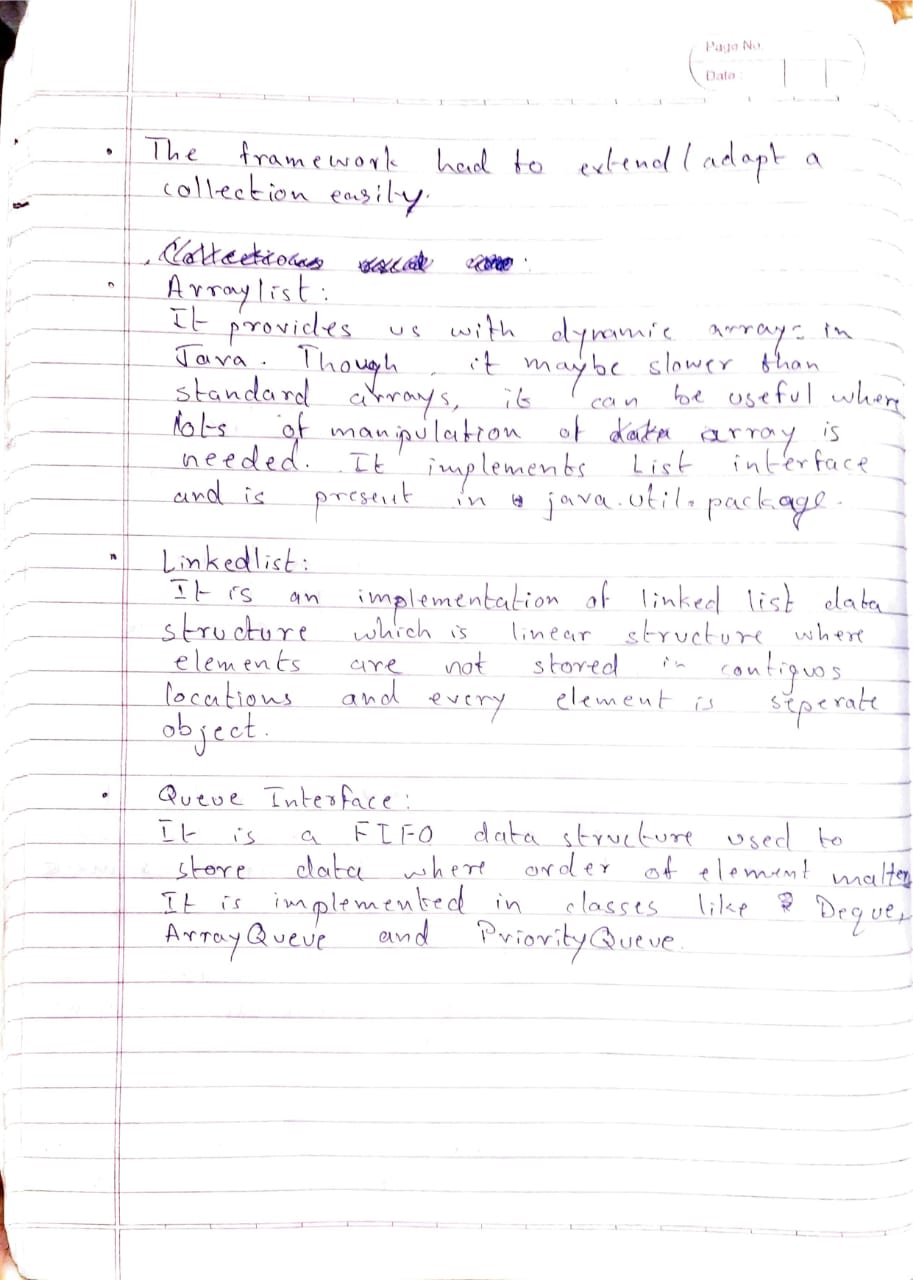 Page No.
Date :
• The framework had to extend/adapt a
collection easily.
Collections
• Arraylist:
It provides us with dynamic arrays in
Java. Though, it maybe slower than
standard arrays, it can be useful where
lots of manipulation of data array is
needed. It implements List interface
and is present in java.util. package.
• Linkedlist:
It is an implementation of linked list data
structure which is linear structure where
elements are not stored in contiguos
locations and every element is seperate
object.
• Queue Interface:
It is a FIFO data structure used to
store data where order of element matter
It is implemented in classes like Deque,
ArrayQueue and PriorityQueue.